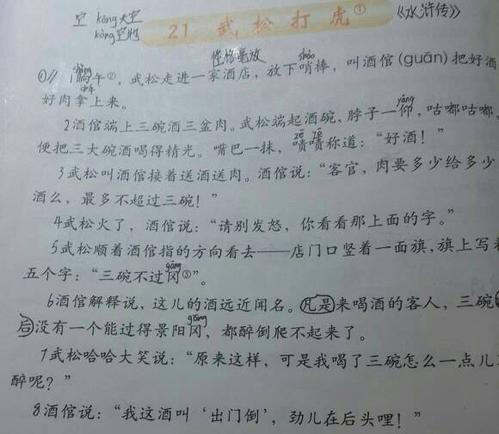 空 kōng天空
kòng空地
21 武松打虎① 《水浒传》
性格豪放 shào
①// 晌午②，武松走进一家酒店，放下哨棒，叫酒倌(guān)把好酒
好肉拿上来。
yǎng
2酒倌端上三碗酒三盆肉。武松端起酒碗，脖子一仰，咕嘟咕嘟，
zé zé
便把三大碗酒喝得精光。嘴巴一抹，啧啧称道：“好酒！”
3武松叫酒倌接着送酒送肉。酒倌说：“客官，肉要多少给多少
酒么，最多不超过三碗！”
4武松火了，酒倌说：“请别发怒，你看看那上面的字。”
5武松顺着酒倌指的方向看去——店门口竖着一面旗，旗上写着
gāng
五个字：“三碗不过冈③”。
6酒倌解释说，这儿的酒远近闻名。凡是来喝酒的客人，三碗
gāng
后没有一个能过得景阳冈，都醉倒爬不起来了。
7武松哈哈大笑说：“原来这样，可是我喝了三碗怎么一点儿
醉呢？”
8酒倌说：“我这酒叫‘出门倒’，劲儿在后头哩！”